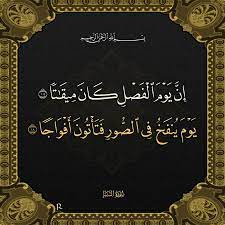 بِسْمِ اللَّهِ الرَّحْمَٰنِ الرَّحِيمِ
إِنَّ يَوْمَ ٱلْفَصْلِ كَانَ مِيقَٰتًا
يَوْمَ يُنفَخُ فِى ٱلصُّورِ فَتَأْتُونَ أَفْوَاجًا